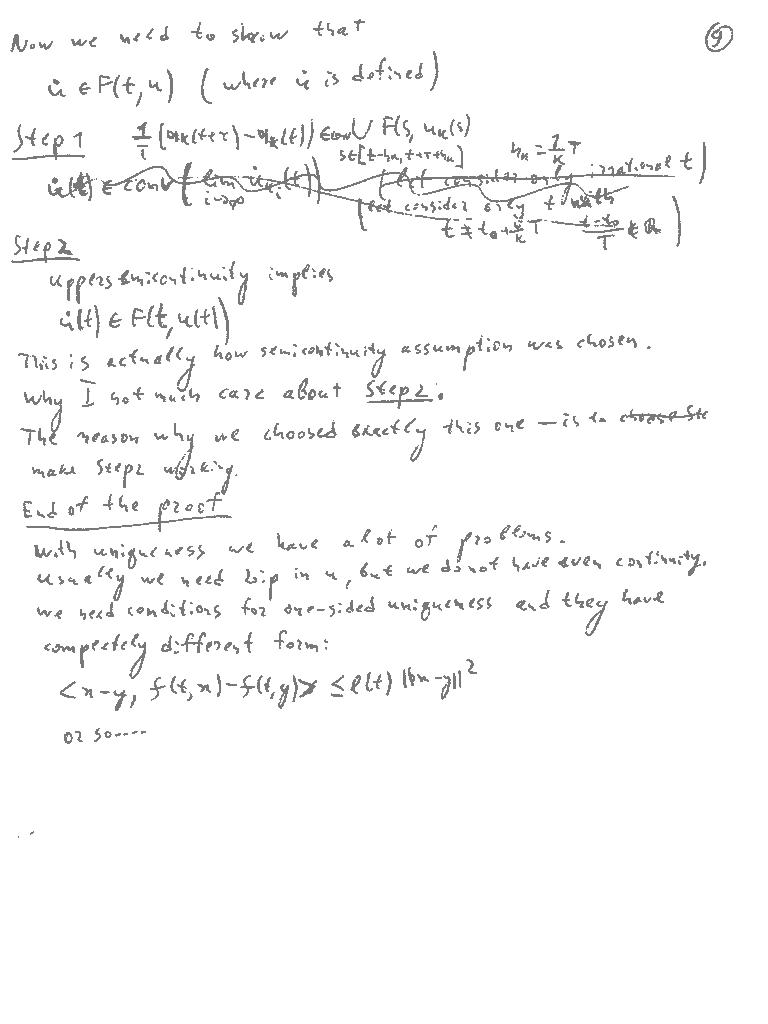 Now we need to show that
9
u̇ ∈ F(t, u) (where u̇ is defined)
Step 1 1/τ (u_k(t+τ) - u_k(t)) ∈ conv ∪ F(s, u_k(s)
s∈[t-h_k, t+τ+h_k] h_k = 1/k T
u̇(t) ∈ conv ( lim u̇_k_i(t) ) (let consider only irrational t)
i→∞ (let consider only t with
t ≠ t_0 + i/k T (t-t_0)/T ∉ Q )
Step 2
uppersemicontinuity implies
u̇(t) ∈ F(t, u(t))
This is actually how semicontinuity assumption was chosen.
Why I not much care about Step 2.
The reason why we choosed exactly this one – is to choose Ste
make Step 2 working.
End of the proof
With uniqueness we have a lot of problems.
Usually we need Lip in u, but we do not have even continuity.
we need conditions for one-sided uniqueness and they have
completely different form:
<x-y, f(t,x)-f(t,y)> ≤ l(t) ||x-y||²
or so.....